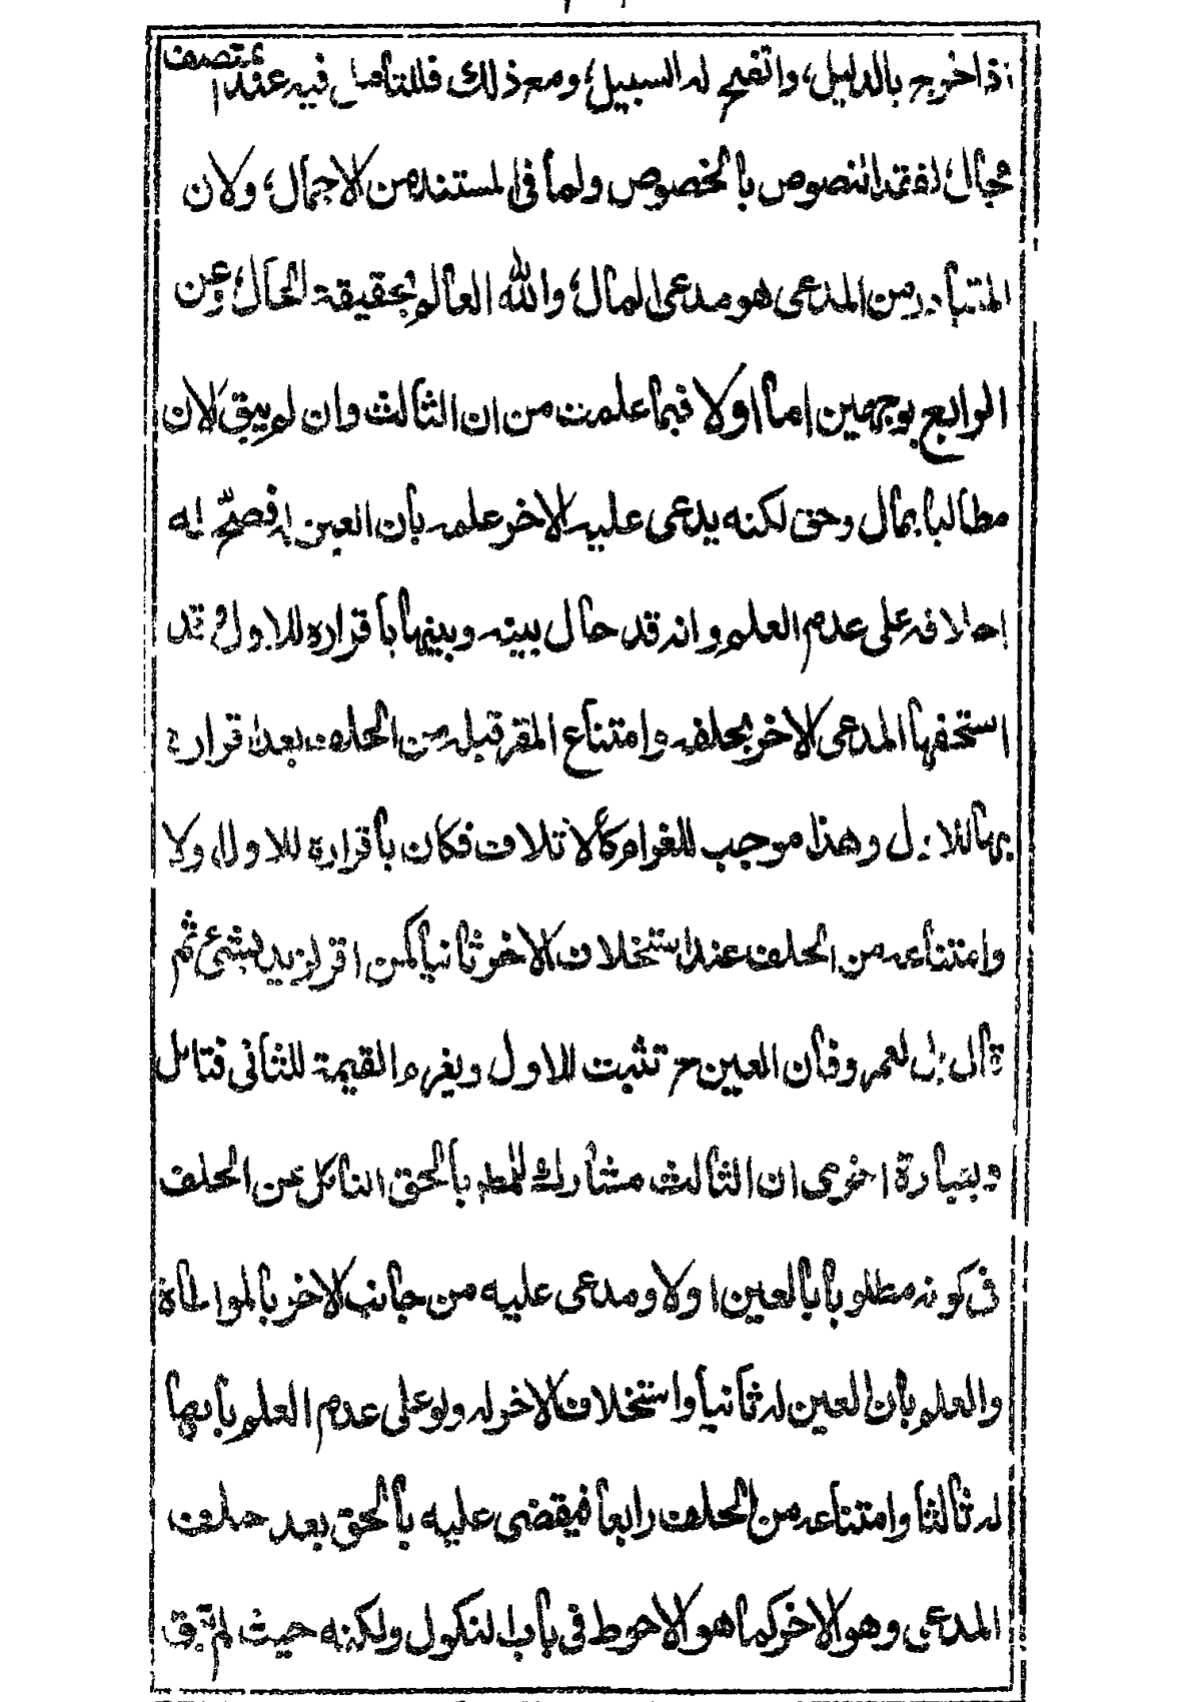 إذا خرج بالدليل، واتضح له السبيل؛ ومع ذلك فللتأمل فيه عندا
تصف
مجال؛ لفقد النصوص بالخصوص ولما فى المستند من الاجمال؛ ولان
المتبادر من المدعى هو مدعى المال؛ والله العالم بحقيقة الحال؛ وعن
الرابع بوجهين اما اولا فبما علمت من ان الثالث وان لم يبق الان
مطالبا بمال وحق لكنه يدعى عليه الاخر علمه بان العين له فصح له
احلافه على عدم العلم وانه قد حال بينه وبينها باقراره للاول وقد
استحقها المدعى الاخر بحلفه وامتناع المقر قبله من الحلف بعد اقراره
بها للاول وهذا موجب للغرام كالاتلاف فكان باقراره للاول اولا
وامتناعه من الحلف عند استحلاف الاخر ثانيا كمن اقر لزيد بشئ ثم
قال بل لعمرو فان العين ح تثبت للاول ويغرم القيمة للثانى فتامل
وبعبارة اخرى ان الثالث مشارك للمط بالحق الناكل عن الحلف
فى كونه مطلوبا بالعين اولا ومدعى عليه من جانب الاخر بالمواطاة
والعلم بان العين له ثانيا واستحلاف الاخر له ولو على عدم العلم بانها
له ثالثا وامتناعه من الحلف رابعا فيقضى عليه بالحق بعد حلف
المدعى وهو الاخر كما هو الاحوط فى باب النكول ولكنه حيث لم يبق